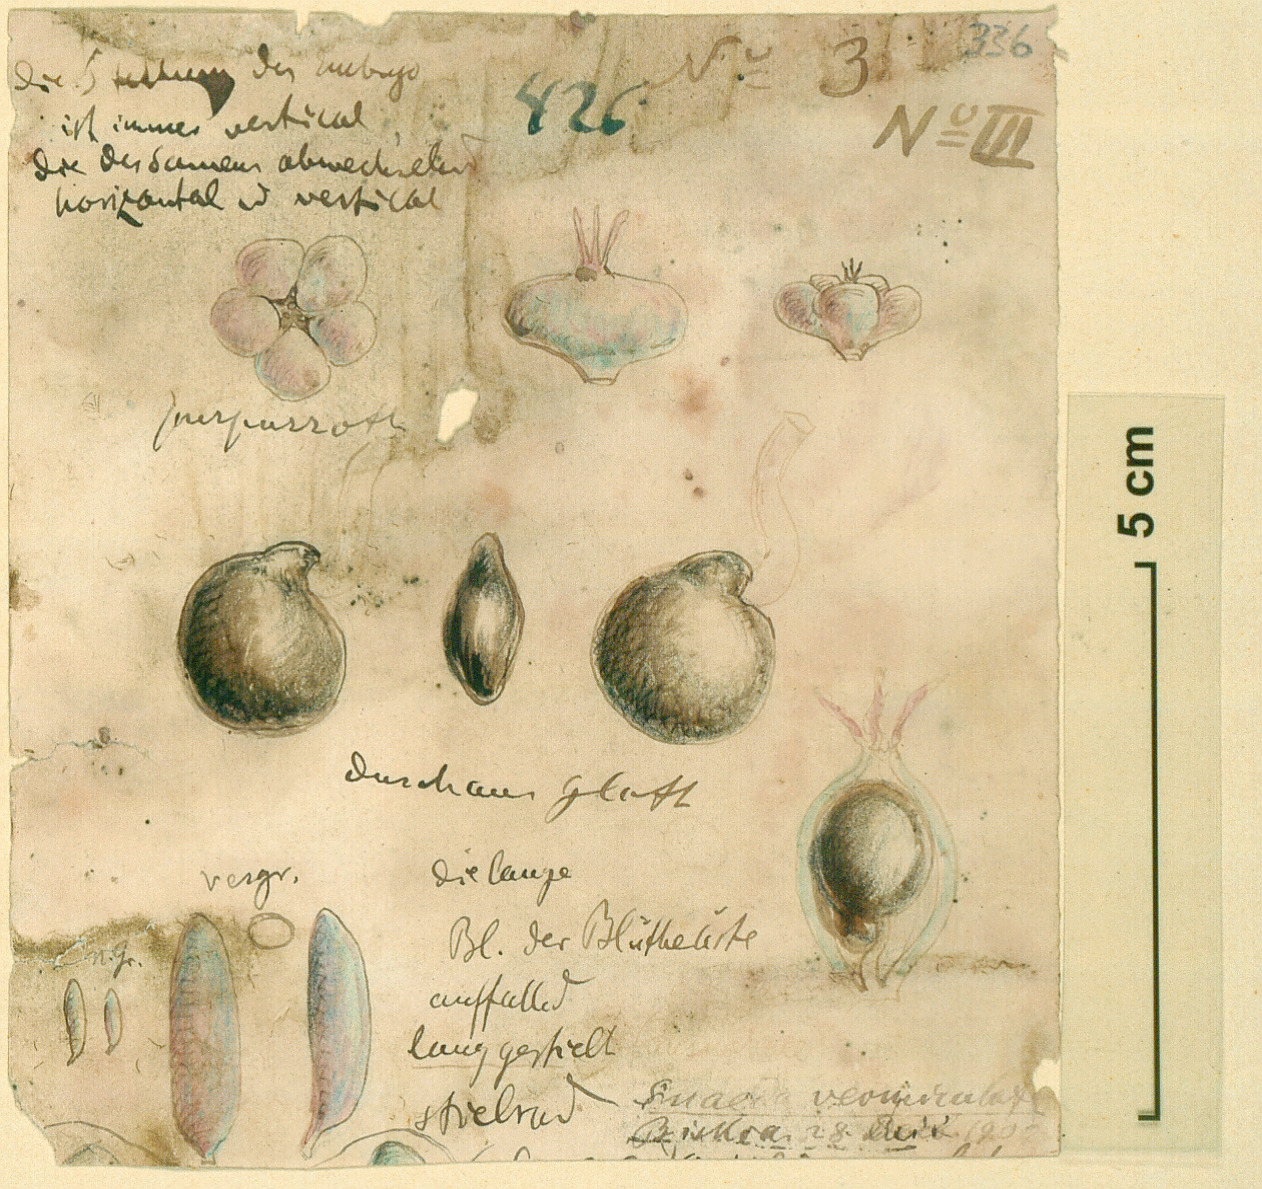 336
Nº 3
826
Nº III
die Stellung des Embryo
ist immer vertical,
die des Samens abwechselnd
horizontal u vertical
purpurroth
5 cm
durchaus glatt
vergr.
n. gr.
die lange
Bl. der Blüthenäste
auffalled
lang gestielt
stielrund
Suaeda vermiculata
Biskra 28